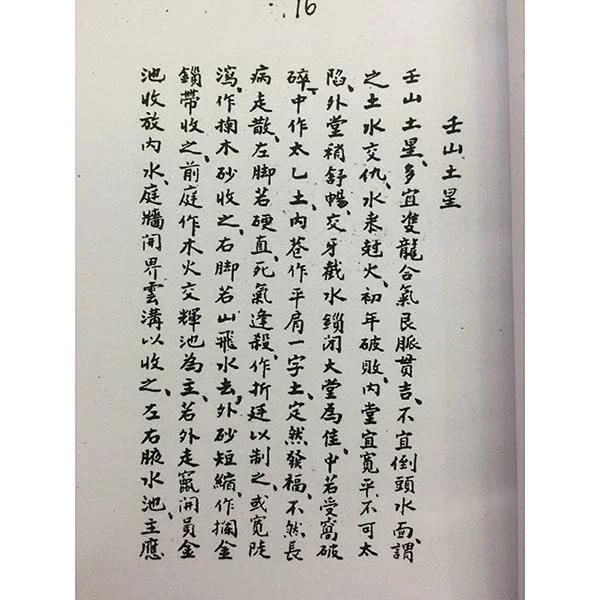 16
壬山土星
壬山土星、多宜雙龍合氣艮脈貫吉、不宜倒頭水面、謂
之土水交仇、水來尅火、初年破敗、內堂宜寬平不可太
陷、外堂稍舒暢、交牙截水鎖閉大堂為佳、中若受窩破
碎、中作太乙土、內苍作平肩一字土、定然發福、不然長
病走散、左脚若硬直、死氣逢殺、作折廷以制之、或寬陡
瀉、作攔木砂收之、右脚若山飛水去、外砂短縮、作攔金
鎖帶收之、前庭作木火交輝池為主、若外走竄開員金
池收放內水、庭牆開界雲溝以收之、左右腋水池、主應